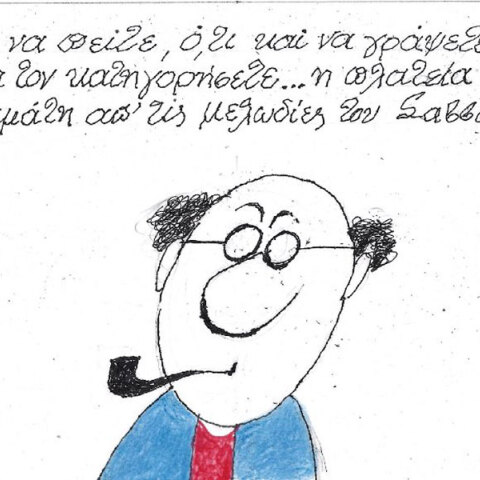 να πείτε, ό,τι και να γράψετε
τον κατηγορήσετε... η πλατεία
μάτη απ' τις μελωδίες του Σαββ